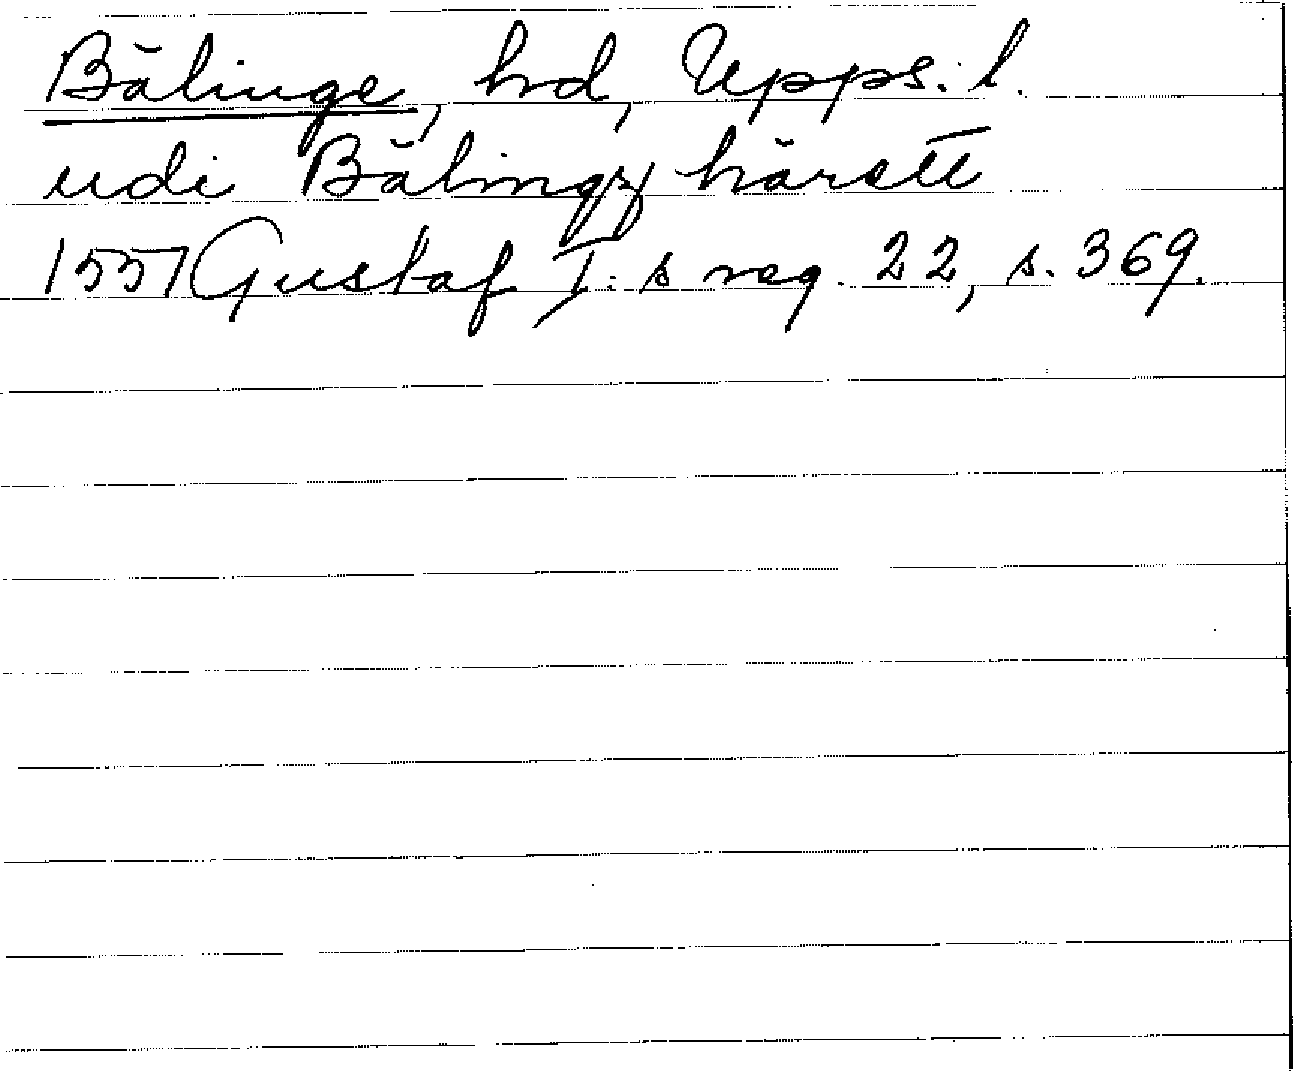 Bälinge, hd, Upps. l.
udi Bälingz härett
1557 Gustaf I: s reg. 22, s. 369.